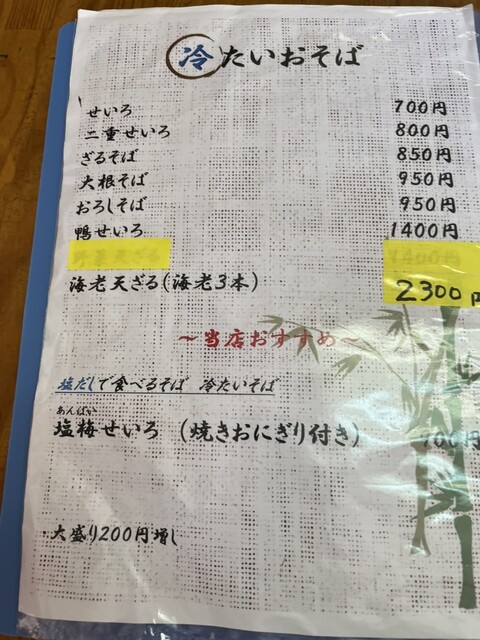 冷たいおそば
せいろ 700円
二重せいろ 800円
ざるそば 850円
大根そば 950円
おろしそば 950円
鴨せいろ 1400円
野菜天ざる 1400円
海老天ざる(海老3本) 2300円
～当店おすすめ～
塩だしで食べるそば 冷たいそば
あんばい
塩梅せいろ (焼きおにぎり付き) 900円
・大盛り200円増し